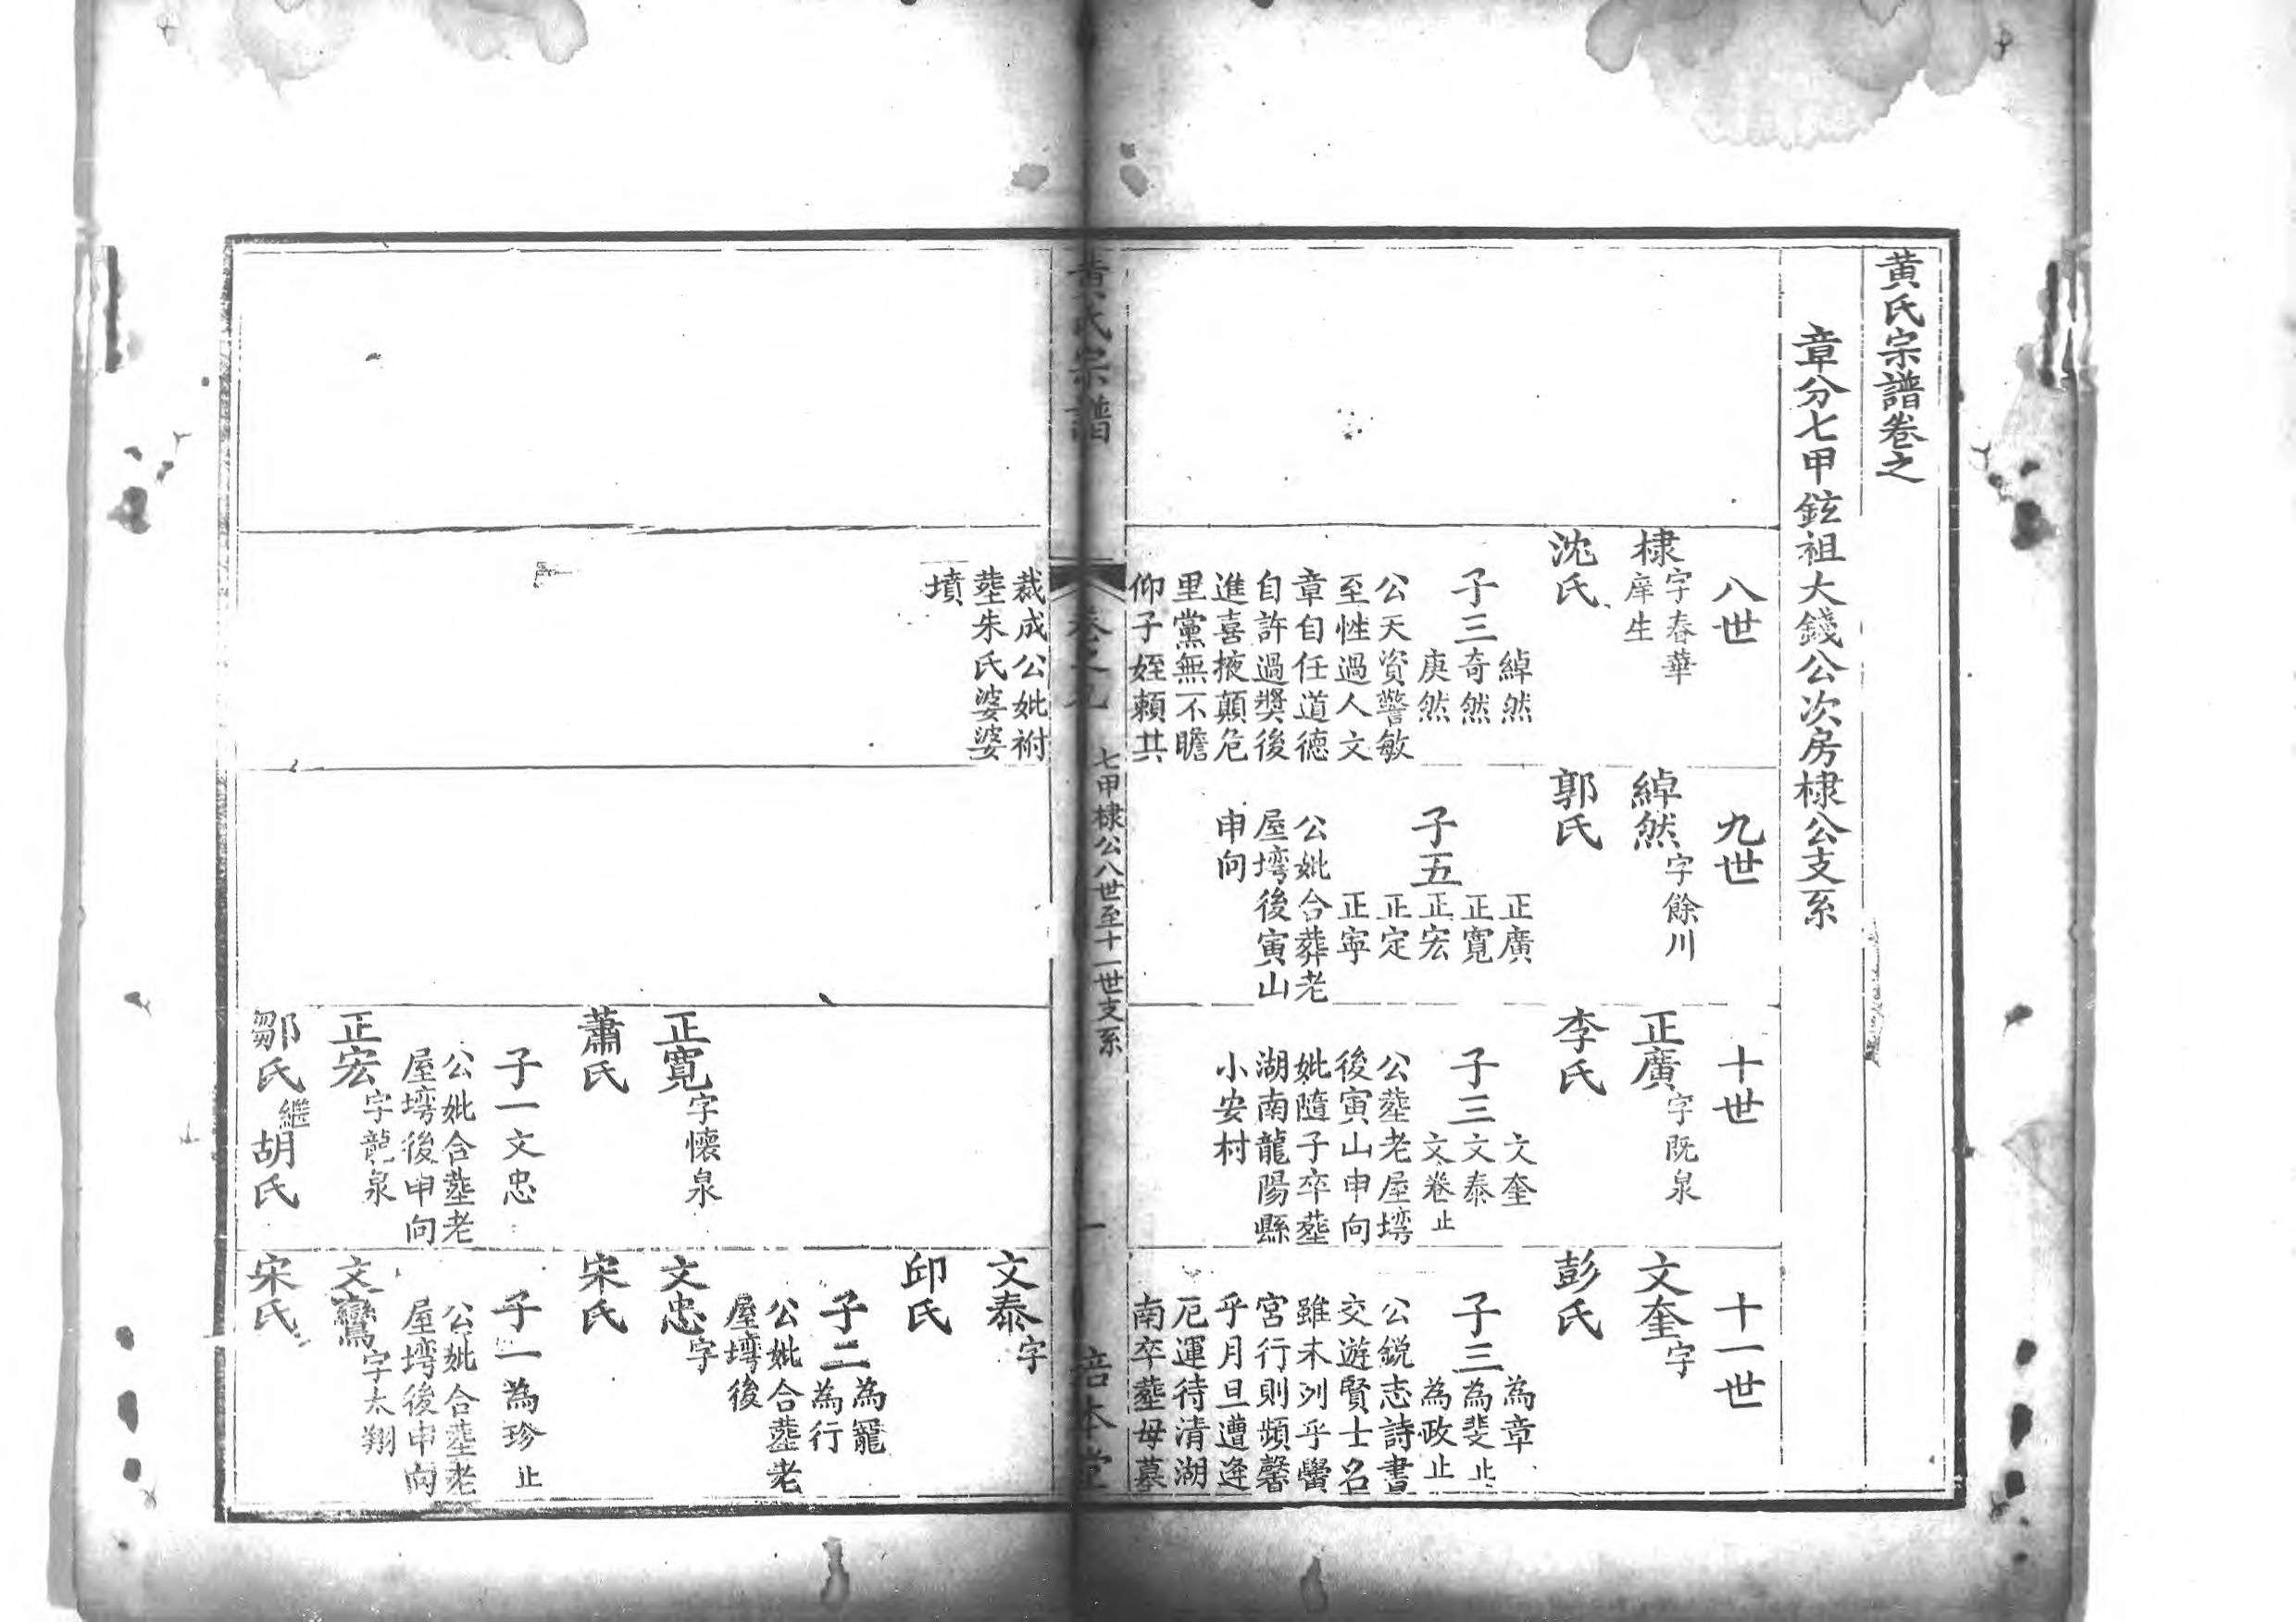 黄氏宗譜卷之
章分七甲鉉祖大錢公次房棣公支系
八世
棣字春華
庠生
沈氏
子三
綽然
奇然
庚然
公天資警敏
至性過人文
章自任道德
自許過獎後
進喜掖顛危
里黨無不瞻
仰子姪賴其
九世
綽然字餘川
郭氏
子五
正廣
正寬
正宏
正定
正寧
公妣合葬老
屋塆後寅山
申向
十世
正廣字既泉
李氏
子三
文奎
文泰
文卷止
公塟老屋塆
後寅山申向
妣隨子卒塟
湖南龍陽縣
小安村
十一世
文奎字
彭氏
子三
為章
為斐止
為政止
公銳志詩書
交遊賢士名
雖未列乎黌
宮行則頻馨
乎月旦遭逢
厄運待清湖
南卒塟母墓
黄氏宗譜
卷之九
七甲棣公八世至十一世支系
一
培本堂
裁成公妣祔
塟朱氏婆婆
墳
正寬字懷泉
蕭氏
子一文忠
公妣合塟老
屋塆後申向
正宏字龍泉
鄒氏繼胡氏
文泰字
邱氏
子二
為寵
為行
公妣合塟老
屋塆後
文忠字
宋氏
子一為珍止
公妣合塟老
屋塆後申向
文鸞字太翔
宋氏